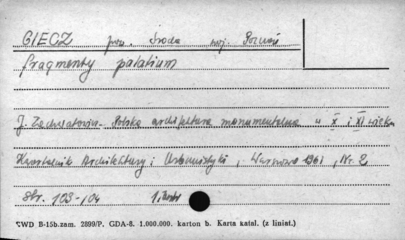 GIECZ pow. Środa woj. Poznań
fragmenty palatium
J. Zachwatowicz - Polska architektura monumentalna w X i XI wieku
Kwartalnik Architektury i Urbanistyki, Warszawa 1961, Nr. 2
Str. 103-104 1 ilustr
ŁWD B-15b.zam. 2899/P. GDA-8. 1.000.000. karton b. Karta katal. (z liniat.)